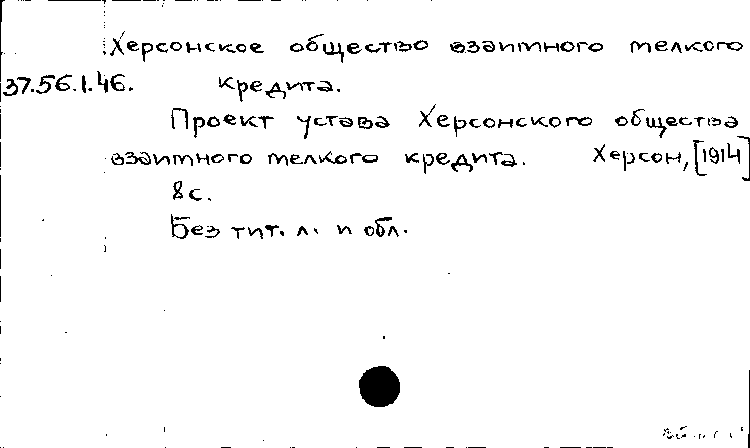 Херсонское общество взаимного мелкого
37.56.1.46. кредита.
Проект устава Херсонского общества
взаимного мелкого кредита. Херсон, [1914]
8 с.
Без тит. л. и обл.